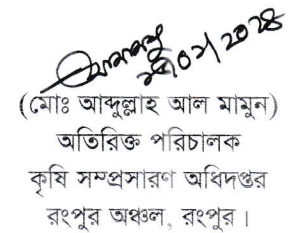 (মোঃ আব্দুল্লাহ আল মামুন)
অতিরিক্ত পরিচালক
কৃষি সম্প্রসারণ অধিদপ্তর
রংপুর অঞ্চল, রংপুর।